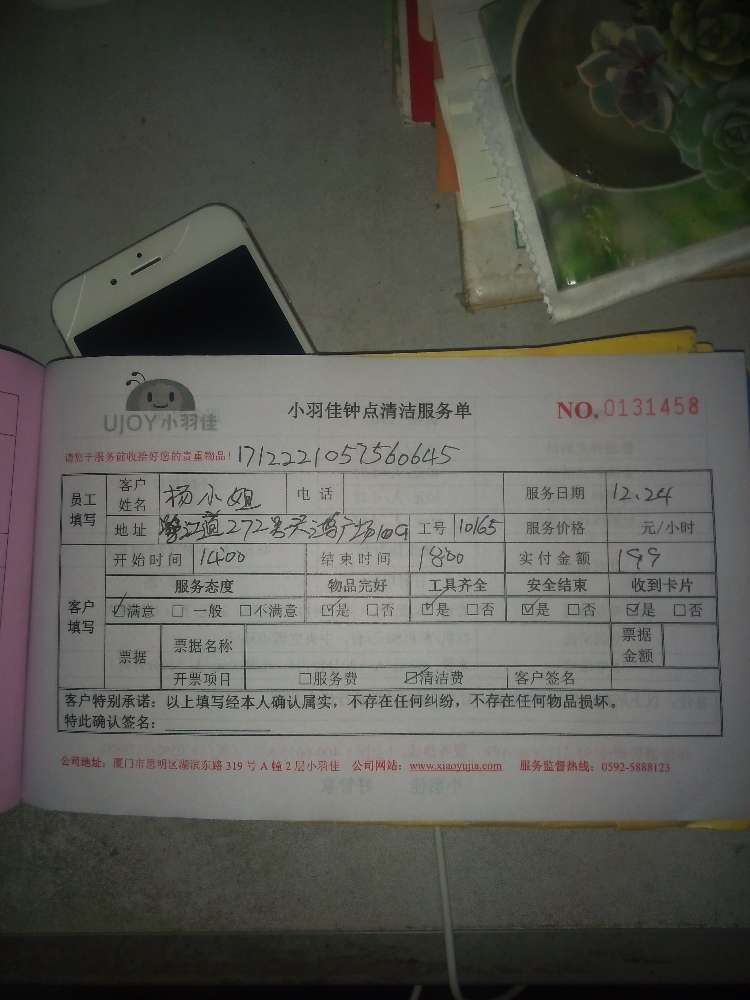 UJOY小羽佳
小羽佳钟点清洁服务单
NO.0131458
请您于服务前收拾好您的贵重物品！1712221057560645
员工填写 客户姓名 杨小姐 电话 服务日期 12.24
地址 道272号天鸿广场 工号 10165 服务价格 元/小时
客户填写 开始时间 14:00 结束时间 18:00 实付金额 199
服务态度 物品完好 工具齐全 安全结束 收到卡片
☑满意 □一般 □不满意 ☑是 □否 ☑是 □否 ☑是 □否 ☑是 □否
票据 票据名称 票据金额
开票项目 □服务费 ☑清洁费 客户签名
客户特别承诺：以上填写经本人确认属实，不存在任何纠纷，不存在任何物品损坏。
特此确认签名：
公司地址：厦门市思明区湖滨东路 319 号 A 幢 2 层小羽佳 公司网站：www.xiaoyujia.com 服务监督热线：0592-5888123